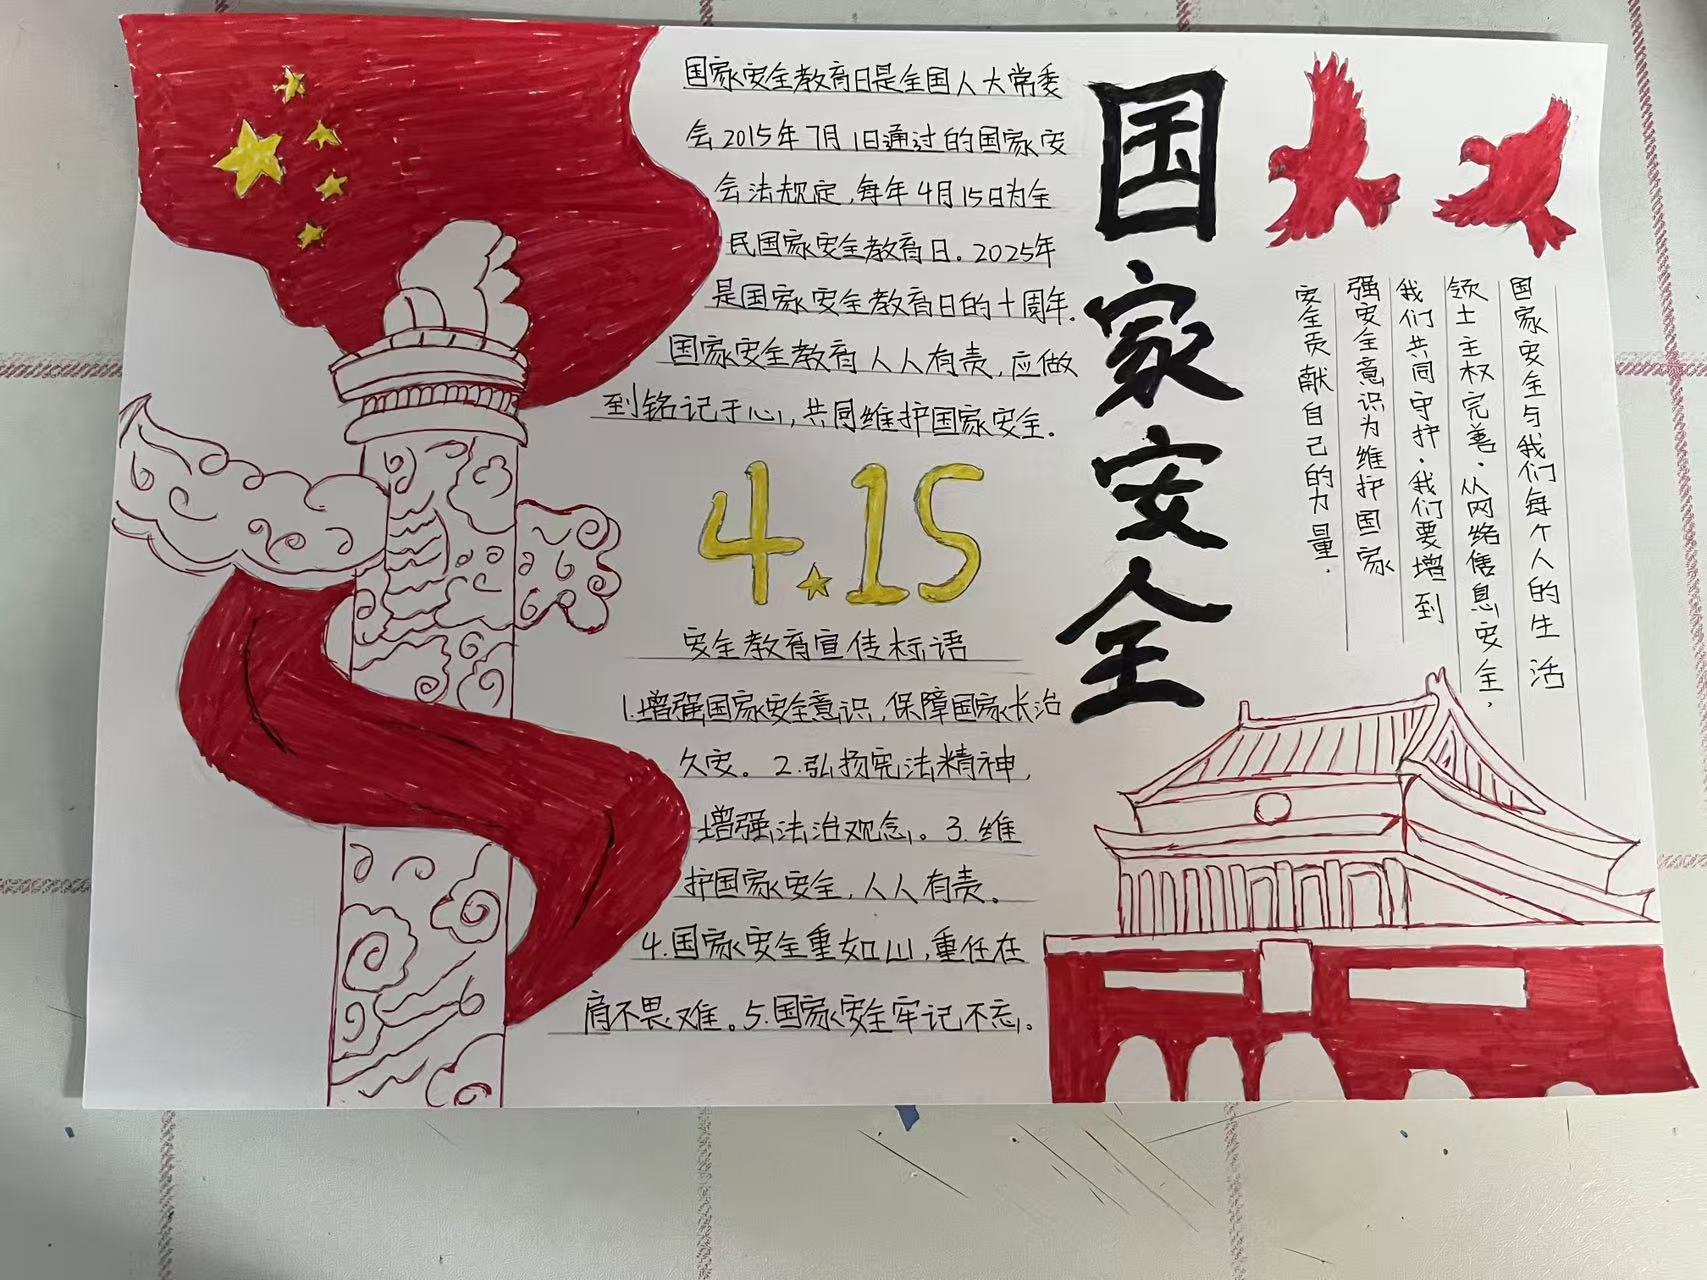 国家安全教育日是全国人大常委
会2015年7月1日通过的国家安
会法规定,每年4月15日为全
民国家安全教育日。2025年
是国家安全教育日的十周年.
国家安全教育人人有责,应做
到铭记于心,共同维护国家安全.
4.15
安全教育宣传标语
1.增强国家安全意识,保障国家长治
久安。2.弘扬宪法精神,
增强法治观念。3.维
护国家安全,人人有责。
4.国家安全重如山,重任在
肩不畏难。5.国家安全牢记不忘。
国家安全
国家安全与我们每个人的生活
领土主权完善.从网络信息安全,
我们共同守护.我们要增到
强安全意识为维护国家
安全贡献自己的力量.